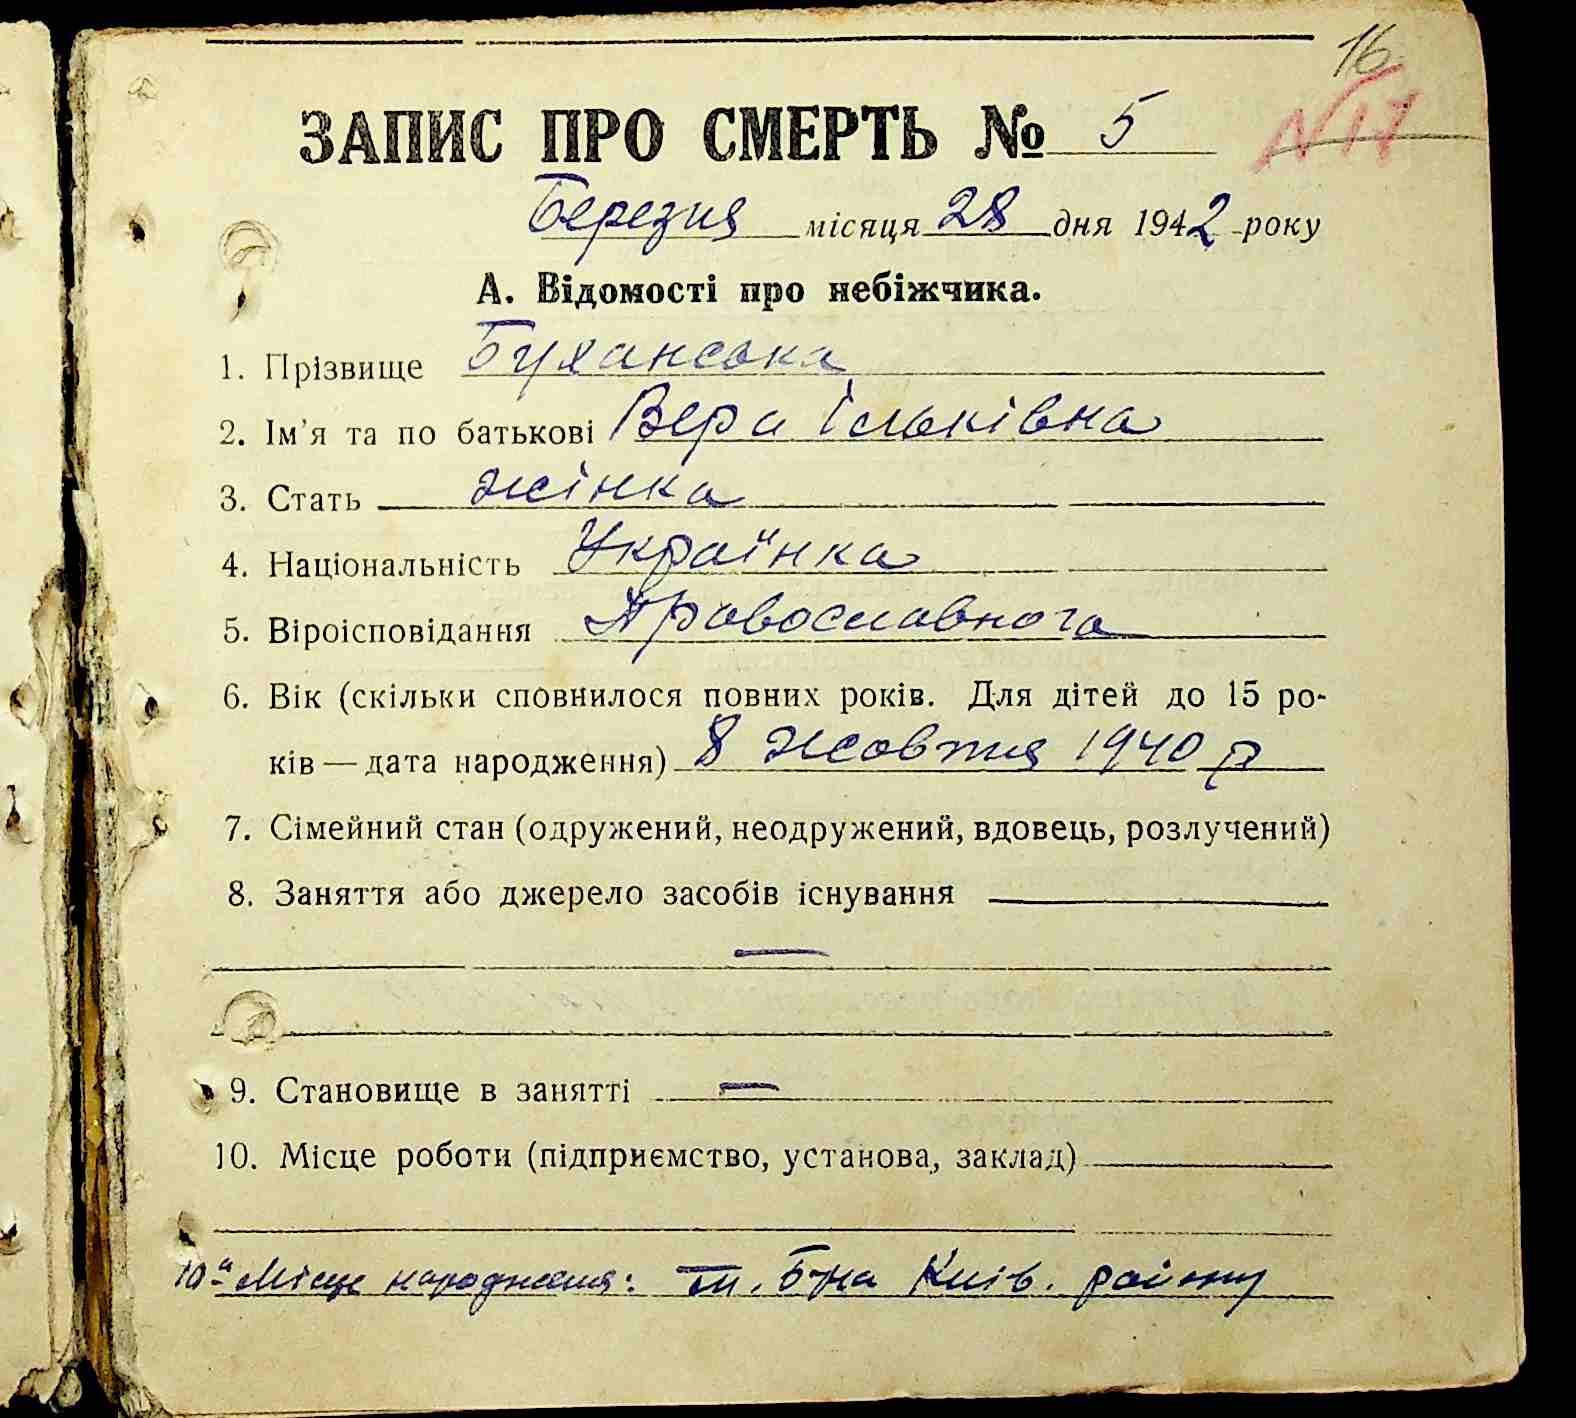 16
N 17
ЗАПИС ПРО СМЕРТЬ № 5
Березня місяця 28 дня 1942 року
А. Відомості про небіжчика.
1. Прізвище Буханська
2. Ім'я та по батькові Вера Ільківна
3. Стать жінка
4. Національність Українка
5. Віроісповідання Православного
6. Вік (скільки сповнилося повних років. Для дітей до 15 ро-
ків — дата народження) 8 жовтня 1940 р
7. Сімейний стан (одружений, неодружений, вдовець, розлучений)
8. Заняття або джерело засобів існування
—
9. Становище в занятті —
10. Місце роботи (підприємство, установа, заклад)
10а Місце народження: Київ. району